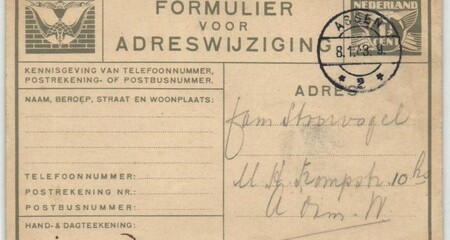 FORMULIER
VOOR
ADRESWIJZIGING
NEDERLAND
CENT
ASSEN
8.1.43.9.
2
KENNISGEVING VAN TELEFOONNUMMER,
POSTREKENING- OF POSTBUSNUMMER.
NAAM, BEROEP, STRAAT EN WOONPLAATS:
ADRES
fam
10
TELEFOONNUMMER:
POSTREKENING NR.:
POSTBUSNUMMER:
HAND- & DAGTEEKENING: